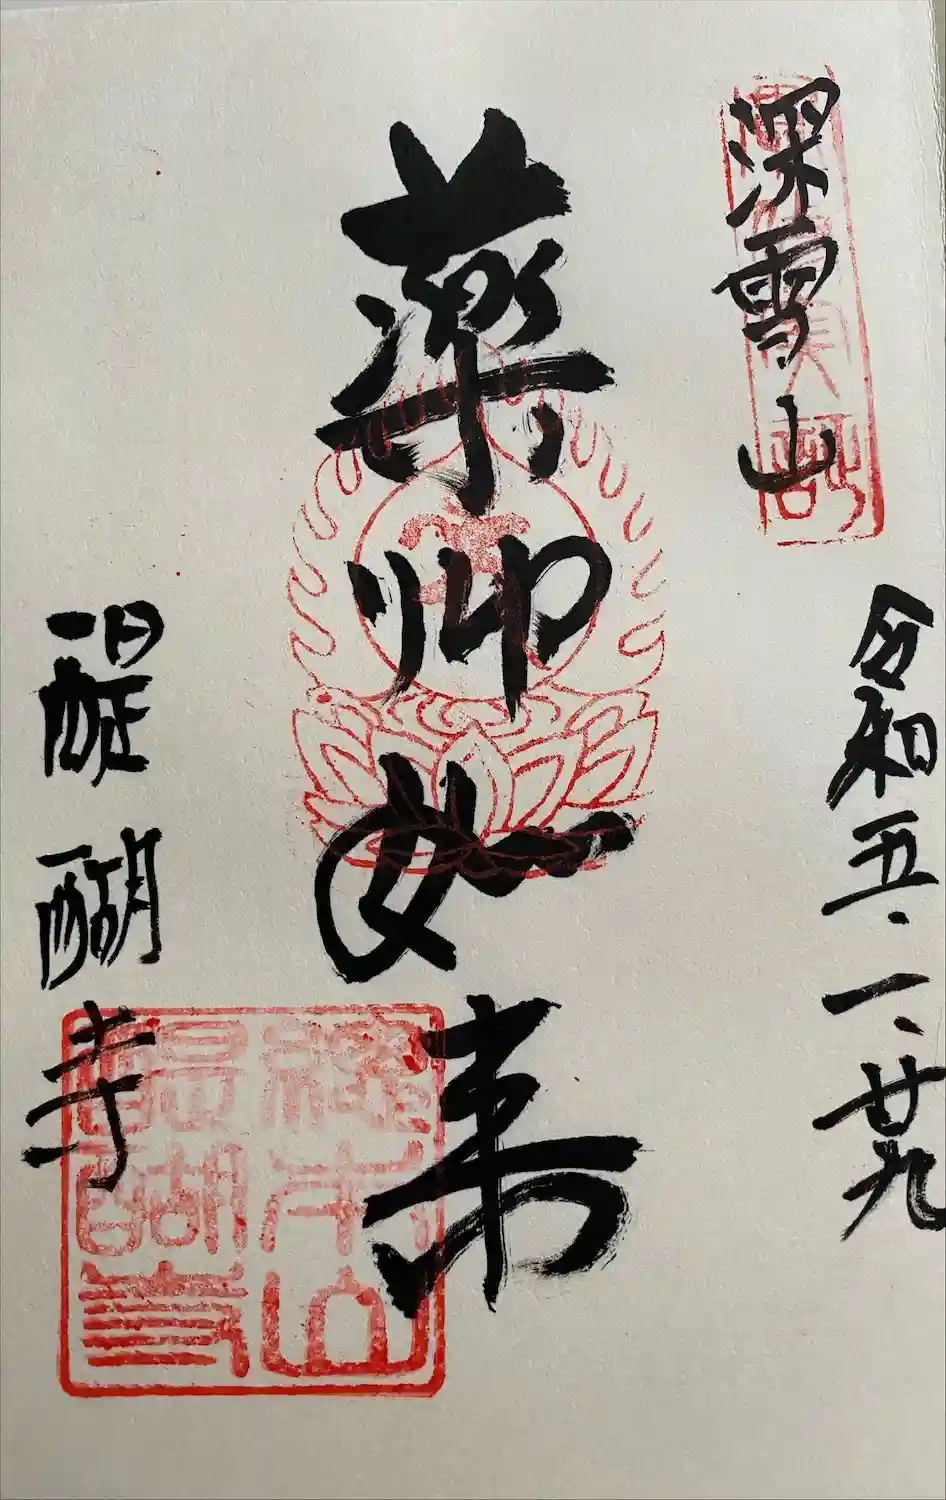 深雪山
令和五、一、廿九
薬師如来
醍醐寺
総本山
醍醐寺